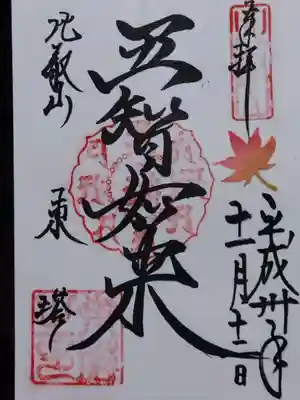 奉拝
平成卅年
十一月十一日
五智如来
比叡山
東塔